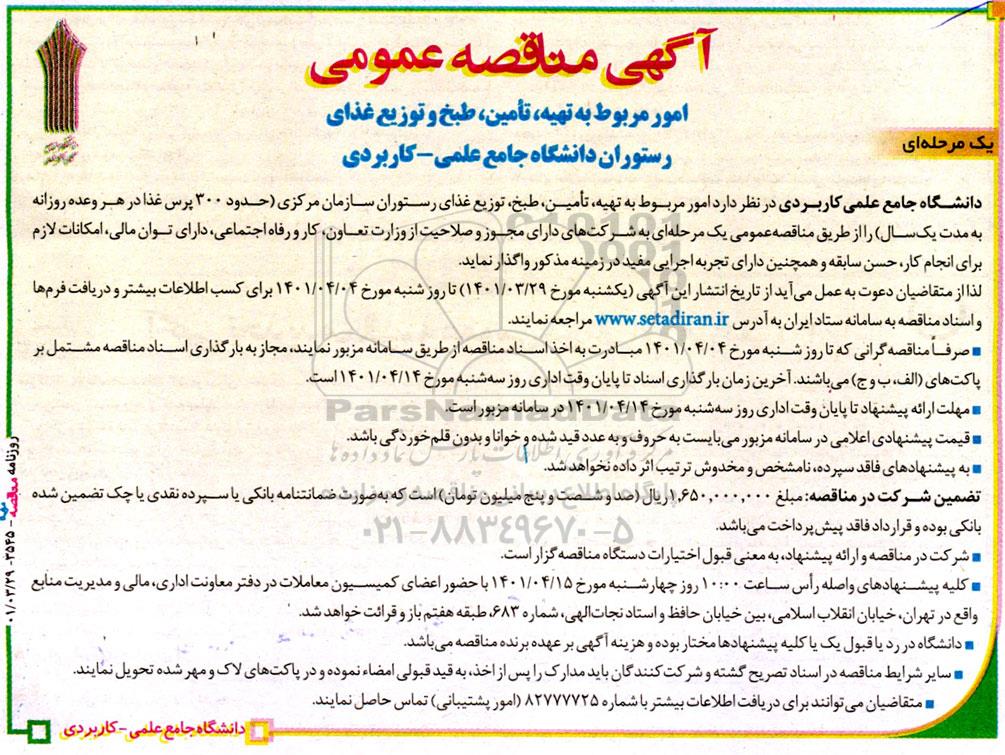 آگهی مناقصه عمومی
امور مربوط به تهیه، تأمین، طبخ و توزیع غذای
رستوران دانشگاه جامع علمی-کاربردی
یک مرحله‌ای
دانشگاه جامع علمی کاربردی در نظر دارد امور مربوط به تهیه، تأمین، طبخ، توزیع غذای رستوران سازمان مرکزی (حدود ۳۰۰ پرس غذا در هر وعده روزانه
به مدت یک سال) را از طریق مناقصه عمومی یک مرحله‌ای به شرکت‌های دارای مجوز و صلاحیت از وزارت تعاون، کار و رفاه اجتماعی، دارای توان مالی، امکانات لازم
برای انجام کار، حسن سابقه و همچنین دارای تجربه اجرایی مفید در زمینه مذکور واگذار نماید.
لذا از متقاضیان دعوت به عمل می‌آید از تاریخ انتشار این آگهی (یکشنبه مورخ ۱۴۰۱/۰۳/۲۹) تا روز شنبه مورخ ۱۴۰۱/۰۴/۰۴ برای کسب اطلاعات بیشتر و دریافت فرم‌ها
و اسناد مناقصه به سامانه ستاد ایران به آدرس www.setadiran.ir مراجعه نمایند.
■ صرفاً مناقصه گرانی که تا روز شنبه مورخ ۱۴۰۱/۰۴/۰۴ مبادرت به اخذ اسناد مناقصه از طریق سامانه مزبور نمایند، مجاز به بارگذاری اسناد مناقصه مشتمل بر
پاکت‌های (الف، ب و ج) می‌باشند. آخرین زمان بارگذاری اسناد تا پایان وقت اداری روز سه‌شنبه مورخ ۱۴۰۱/۰۴/۱۴ است.
■ مهلت ارائه پیشنهاد تا پایان وقت اداری روز سه‌شنبه مورخ ۱۴۰۱/۰۴/۱۴ در سامانه مزبور است.
■ قیمت پیشنهادی اعلامی در سامانه مزبور می‌بایست به حروف و به عدد قید شده و خوانا و بدون قلم خوردگی باشد.
■ به پیشنهادهای فاقد سپرده، نامشخص و مخدوش ترتیب اثر داده نخواهد شد.
تضمین شرکت در مناقصه: مبلغ ۱,۶۵۰,۰۰۰,۰۰۰ ریال (صد و شصت و پنج میلیون تومان) است که به‌صورت ضمانتنامه بانکی یا سپرده نقدی یا چک تضمین شده
بانکی بوده و قرارداد فاقد پیش‌پرداخت می‌باشد.
■ شرکت در مناقصه و ارائه پیشنهاد، به معنی قبول اختیارات دستگاه مناقصه‌گزار است.
■ کلیه پیشنهادهای واصله رأس ساعت ۱۰:۰۰ روز چهارشنبه مورخ ۱۴۰۱/۰۴/۱۵ با حضور اعضای کمیسیون معاملات در دفتر معاونت اداری، مالی و مدیریت منابع
واقع در تهران، خیابان انقلاب اسلامی، بین خیابان حافظ و استاد نجات‌الهی، شماره ۶۸۳، طبقه هفتم باز و قرائت خواهد شد.
■ دانشگاه در رد یا قبول یک یا کلیه پیشنهادها مختار بوده و هزینه آگهی بر عهده برنده مناقصه می‌باشد.
■ سایر شرایط مناقصه در اسناد تصریح گشته و شرکت کنندگان باید مدارک را پس از اخذ، به قید قبولی امضاء نموده و در پاکت‌های لاک و مهر شده تحویل نمایند.
■ متقاضیان می‌توانند برای دریافت اطلاعات بیشتر با شماره ۸۲۷۷۷۷۲۵ (امور پشتیبانی) تماس حاصل نمایند.
دانشگاه جامع علمی-کاربردی
روزنامه مناقصه - ۳۵۴۵ - ۰۱/۰۳/۲۹
ParsNamadData
۰۲۱-۸۸۳۴۹۶۷۰-۵